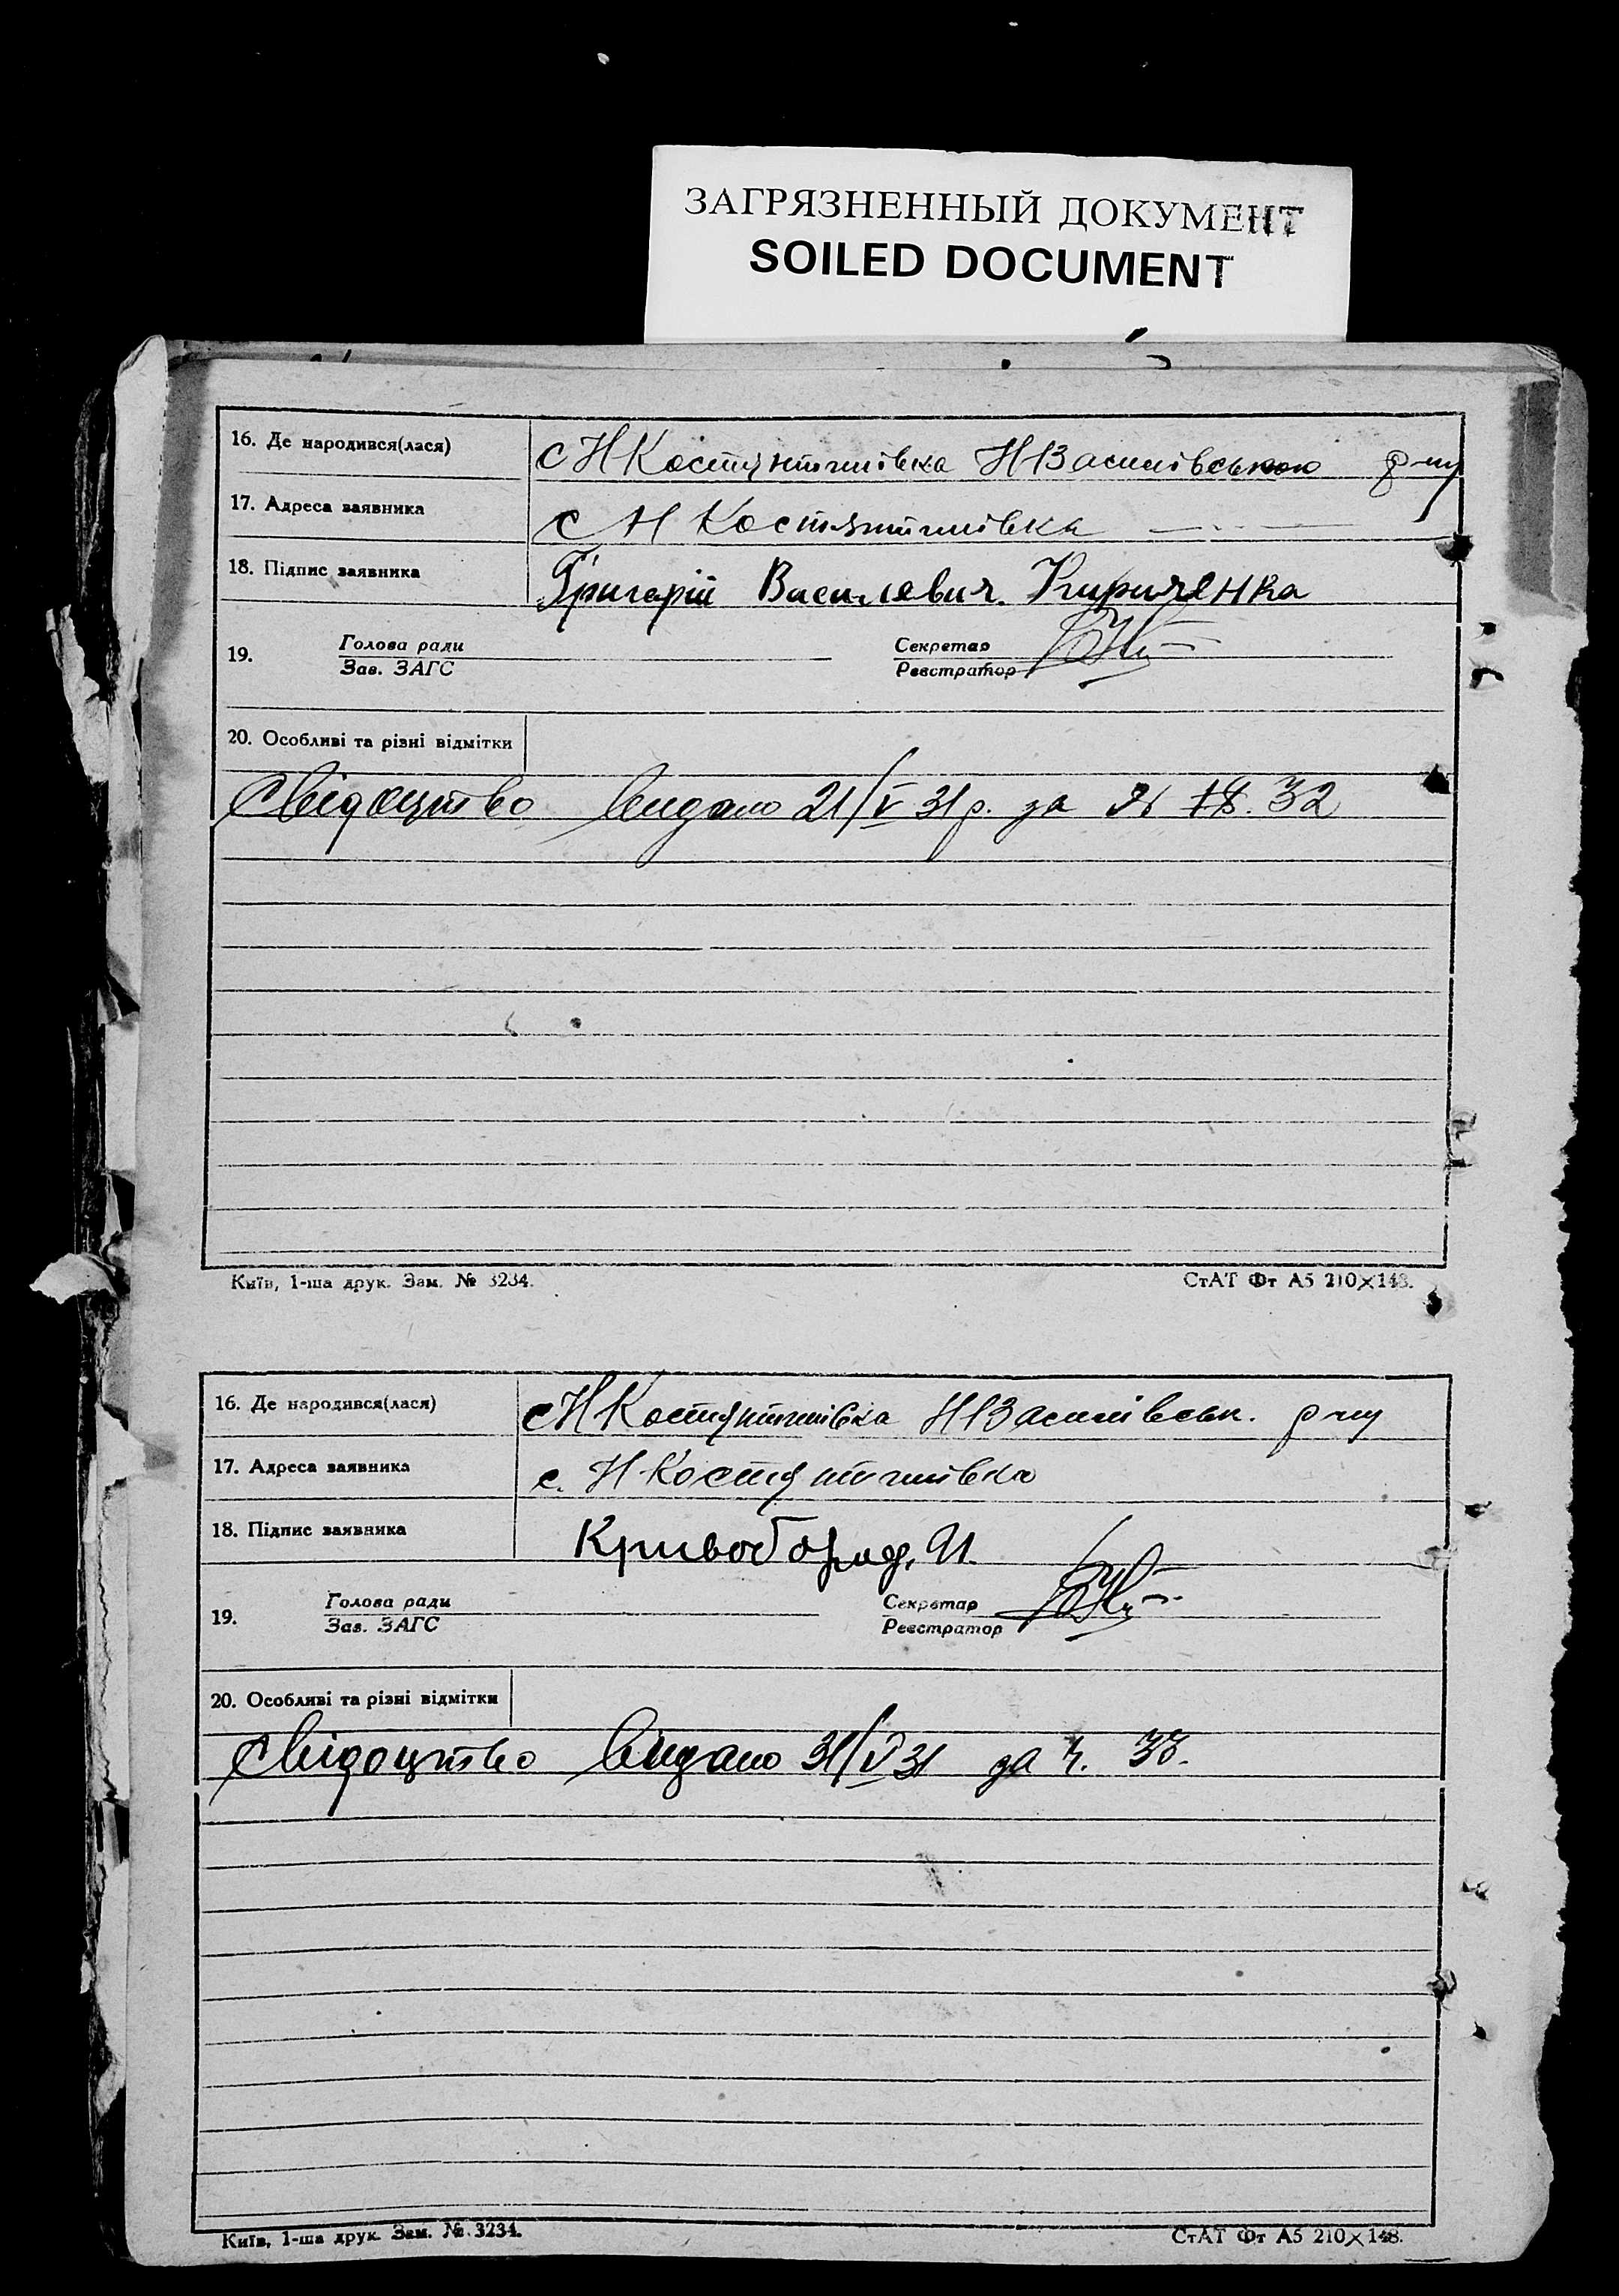 ЗАГРЯЗНЕННЫЙ ДОКУМЕНТ
SOILED DOCUMENT
16. Де народився(лася) с Н Костянтинівка Н Василівського р-ну
17. Адреса заявника с Н Костянтинівка
18. Підпис заявника Григорій Василевич Кириченка
19. Голова ради Секретар
Зав. ЗАГС Реєстратор
20. Особливі та різні відмітки
Свідоцтво видано 21/V 31 р. за № 18. 32
Київ, 1-ша друк. Зам. № 3234. СтАТ Фт А5 210×148.
16. Де народився(лася) с Н Костянтинівка Н Василівськ. р-ну
17. Адреса заявника с. Н Костянтинівка
18. Підпис заявника Кривобород. И.
19. Голова ради Секретар
Зав. ЗАГС Реєстратор
20. Особливі та різні відмітки
Свідоцтво видано 31/V 31 за ч. 33.
Київ, 1-ша друк. Зам. № 3234. СтАТ Фт А5 210×148.